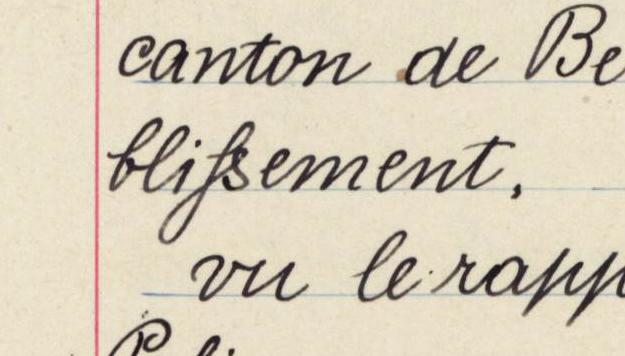 canton de Be
blissement,
vu le rapp